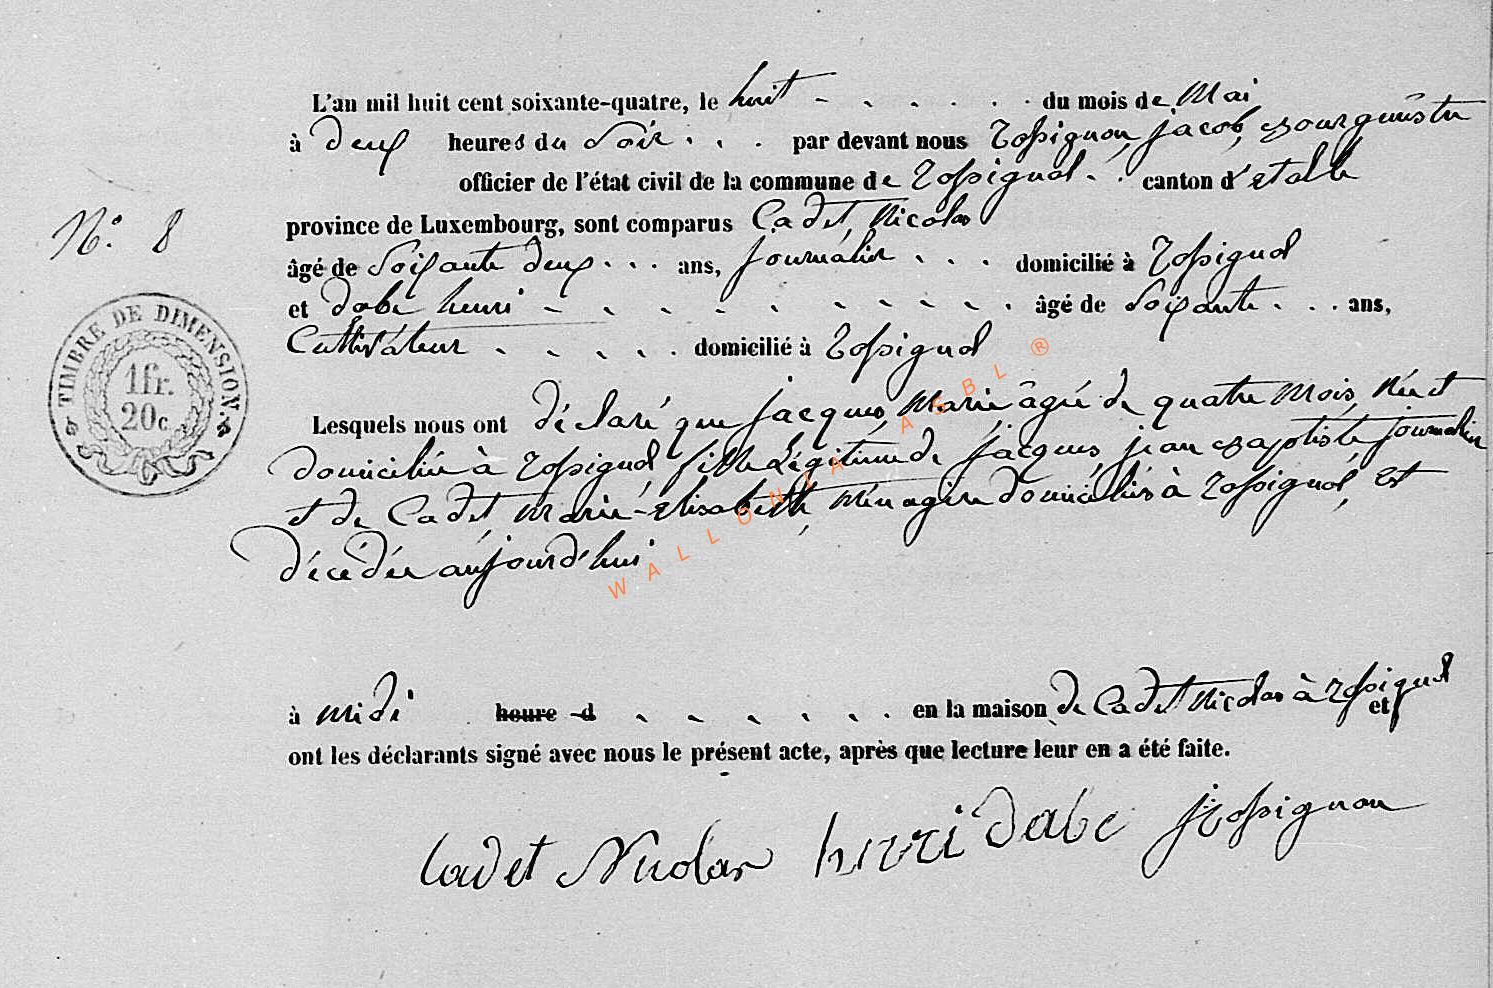 L'an mil huit cent soixante-quatre, le huit - - - - - - du mois de Mai
à deux heures du Soir - - - par devant nous Rossignon, jacob, Bourguêstre
officier de l'état civil de la commune de Rossignol - - canton d'etalle
province de Luxembourg, sont comparus Cadet, Nicolas
N.° 8
âgé de Soixante deux - - - ans, journalier - - - domicilié à Rossignol
et dabe henri - - - - - - - - - âgé de Soixante - - - ans,
Cultivateur - - - - - domicilié à Rossignol
TIMBRE DE DIMENSION.
1fr.
20c
Lesquels nous ont déclaré que jacques, Marie, âgée de quatre Mois, Née et
domiciliée à Rossignol, fille Légitime de jacques, jean Baptiste journalier
et de Cadet Marie-elisabeth, Ménagère domiciliés à Rossignol, Est
décédée aujourd'hui
WALLONIA ASBL ®
à midi heure d - - - - - - en la maison de Cadet Nicolas à Rossignol et
ont les déclarants signé avec nous le présent acte, après que lecture leur en a été faite.
Cadet Nicolas henri dabe JRossignon